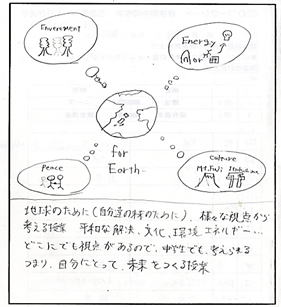 Enverement
Energy
for
Earth
Peace
Culture
Mt.Fuji
地球のために(自分達の村のために)、様々な視点から
考える授業 平和な解決、文化、環境エネルギー…
どこにでも視点があるので、中学生でも考えられる
つまり、自分にとって、未来をつくる授業